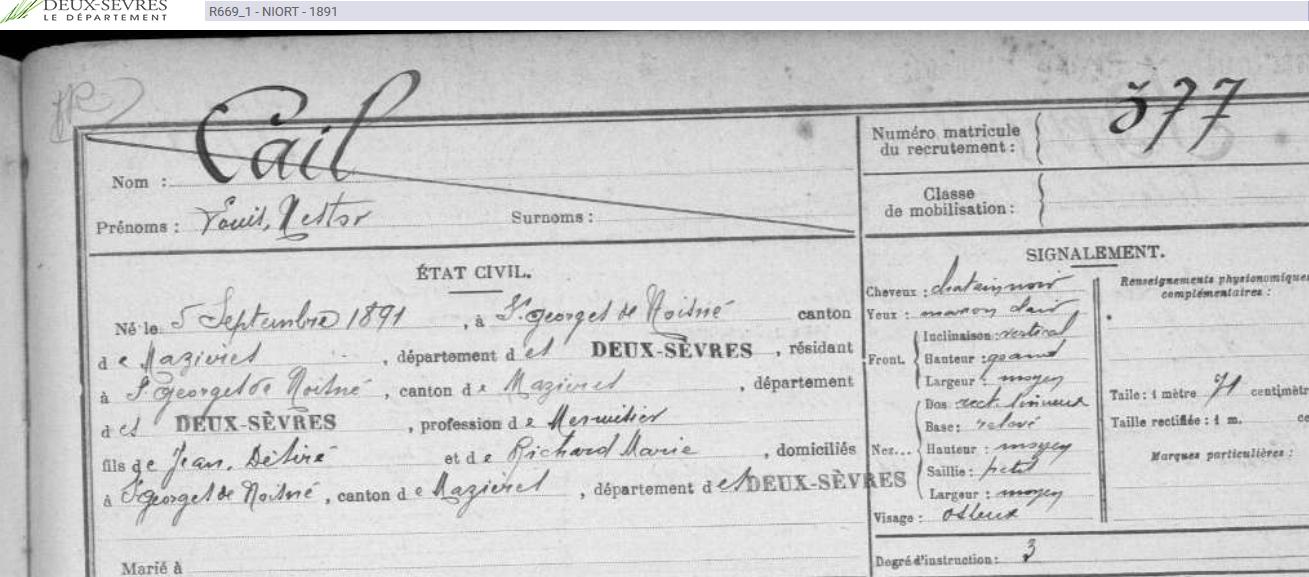 DEUX-SÈVRES
LE DÉPARTEMENT
R669_1 - NIORT - 1891
Nom : Cail
Prénoms : Louis, Nestor Surnoms :
Numéro matricule du recrutement : 377
Classe de mobilisation :
ÉTAT CIVIL.
Né le 5 Septembre 1891, à St Georges de Noisné canton
de Mazières, département des DEUX-SÈVRES, résidant
à St Georges de Noisné, canton de Mazières, département
des DEUX-SÈVRES, profession de Menuisier
fils de Jean, Désiré et de Richard Marie, domiciliés
à St Georges de Noisné, canton de Mazières, département des DEUX-SÈVRES
Marié à
SIGNALEMENT.
Cheveux : chatain noir
Yeux : marron clair
Front. Inclinaison : vertical
Hauteur : grand
Largeur : moyen
Nez... Dos rect. sinueux
Base : relevé
Hauteur : moyen
Saillie : petit
Largeur : moyen
Visage : osseux
Degré d'instruction : 3
Renseignements physionomiques
complémentaires :
Taille : 1 mètre 71 centimètr
Taille rectifiée : 1 m. ce
Marques particulières :